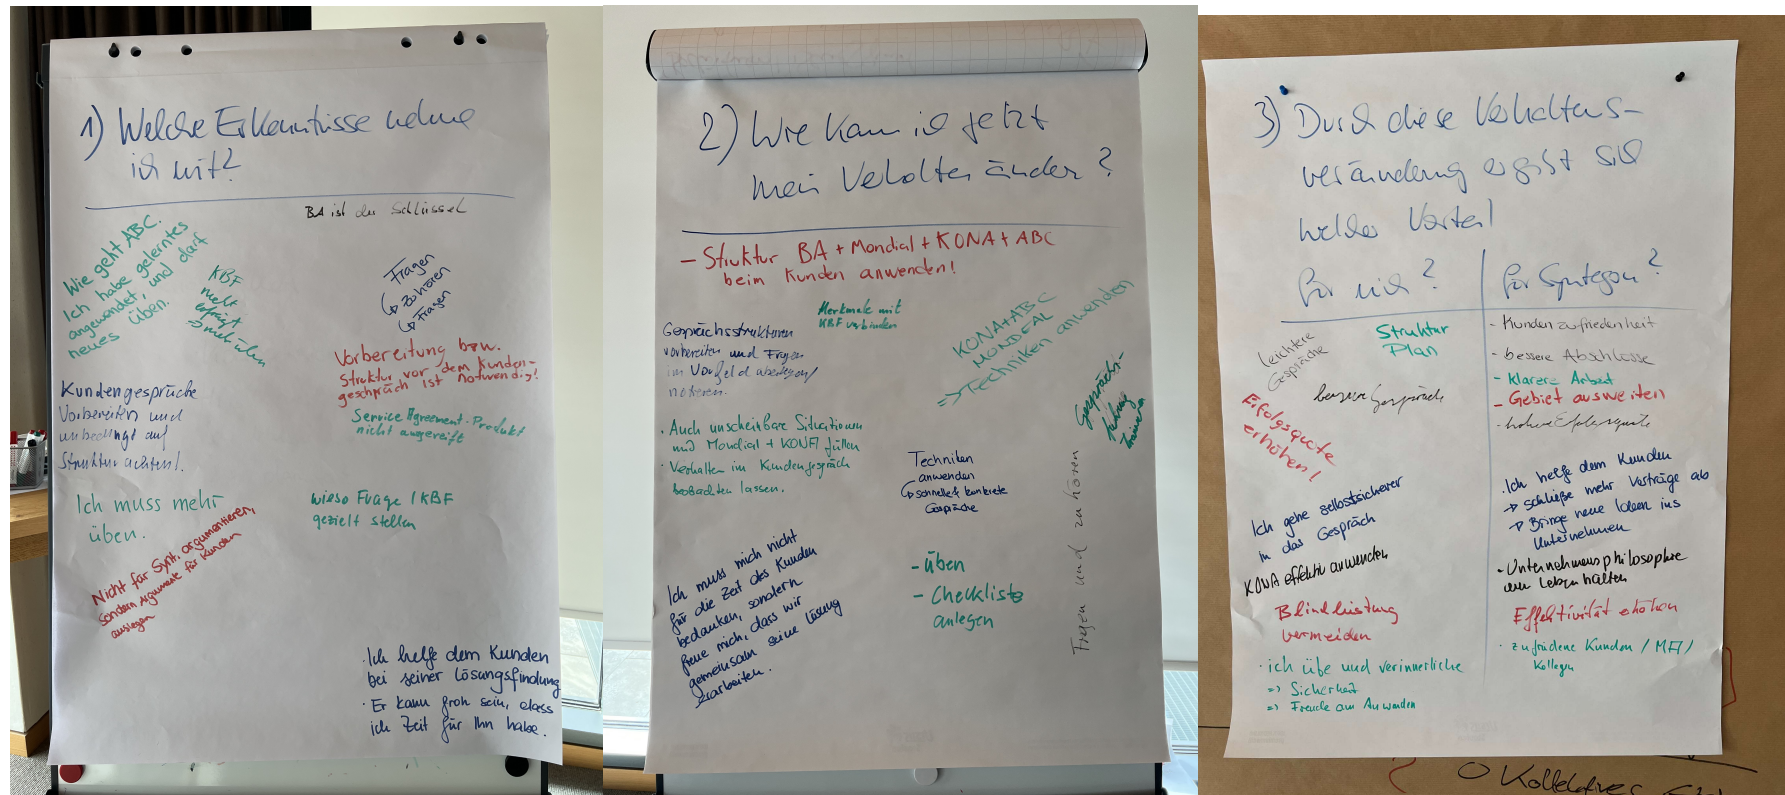 1) Welche Erkenntnisse nehme
ich mit?
BA ist der Schlüssel
Wie geht ABC.
Ich habe gelerntes
angewendet, und darf
neues üben.
KBF
mehr
üben
Fragen
↳ zuhören
↳ Fragen
Vorbereitung bzw.
Struktur vor dem Kunden-
geschpräch ist notwendig!
Service Agreement-Produkt
nicht ausgereift
Kundengespräche
Vorbereiten und
unbedingt auf
Struktur achten!
Ich muss mehr
üben.
wieso Frage / KBF
gezielt stellen
Nicht für Synt. argumentieren,
sondern Argumente für Kunden
auslegen
· Ich helfe dem Kunden
bei seiner Lösungsfindung
· Er kann froh sein, dass
ich Zeit für Ihn habe.
2) Wie kann ich jetzt
mein Verhalten ändern?
- Struktur BA + Mondial + KONA + ABC
beim Kunden anwenden!
Merkmale mit
KBF verbinden
Gesprächsstrukturen
vorbereiten und Fragen
im Vorfeld überlegen/
notieren.
KONA+ABC
MONDEAL
=> Techniken anwenden
Gesprächs-
führung
trainieren
· Auch unscheinbare Situationen
mit Mondial + KONA füllen
· Verhalten im Kundengespräch
beobachten lassen.
Techniken
anwenden
↳ schnelle & konkrete
Gespräche
Fragen und zuhören
Ich muss mich nicht
für die Zeit des Kunden
bedanken, sondern
freue mich, dass wir
gemeinsam seine Lösung
erarbeiten.
- Üben
- Checkliste
anlegen
3) Durch diese Verhaltens-
veränderung ergibt sich
welcher Vorteil
für mich?
für Syntegon?
leichtere
Gespräche
Struktur
Plan
bessere Gespräche
Erfolgsquote
erhöhen!
Ich gehe selbstsicherer
in das Gespräch
KONA effektiv anwenden
Blindleistung
vermeiden
· ich übe und verinnerliche
=> Sicherheit
=> Freude am Anwenden
- Kundenzufriedenheit
- bessere Abschlüsse
- klarere Arbeit
- Gebiet ausweiten
- höhere Erfolgsquote
· Ich helfe dem Kunden
→ schließe mehr Verträge ab
→ Bringe neue Ideen ins
Unternehmen
- Unternehmensphilosophie
am Leben halten
Effektivität erhöhen
· zufriedene Kunden / MA /
Kollegen
O Kollektives